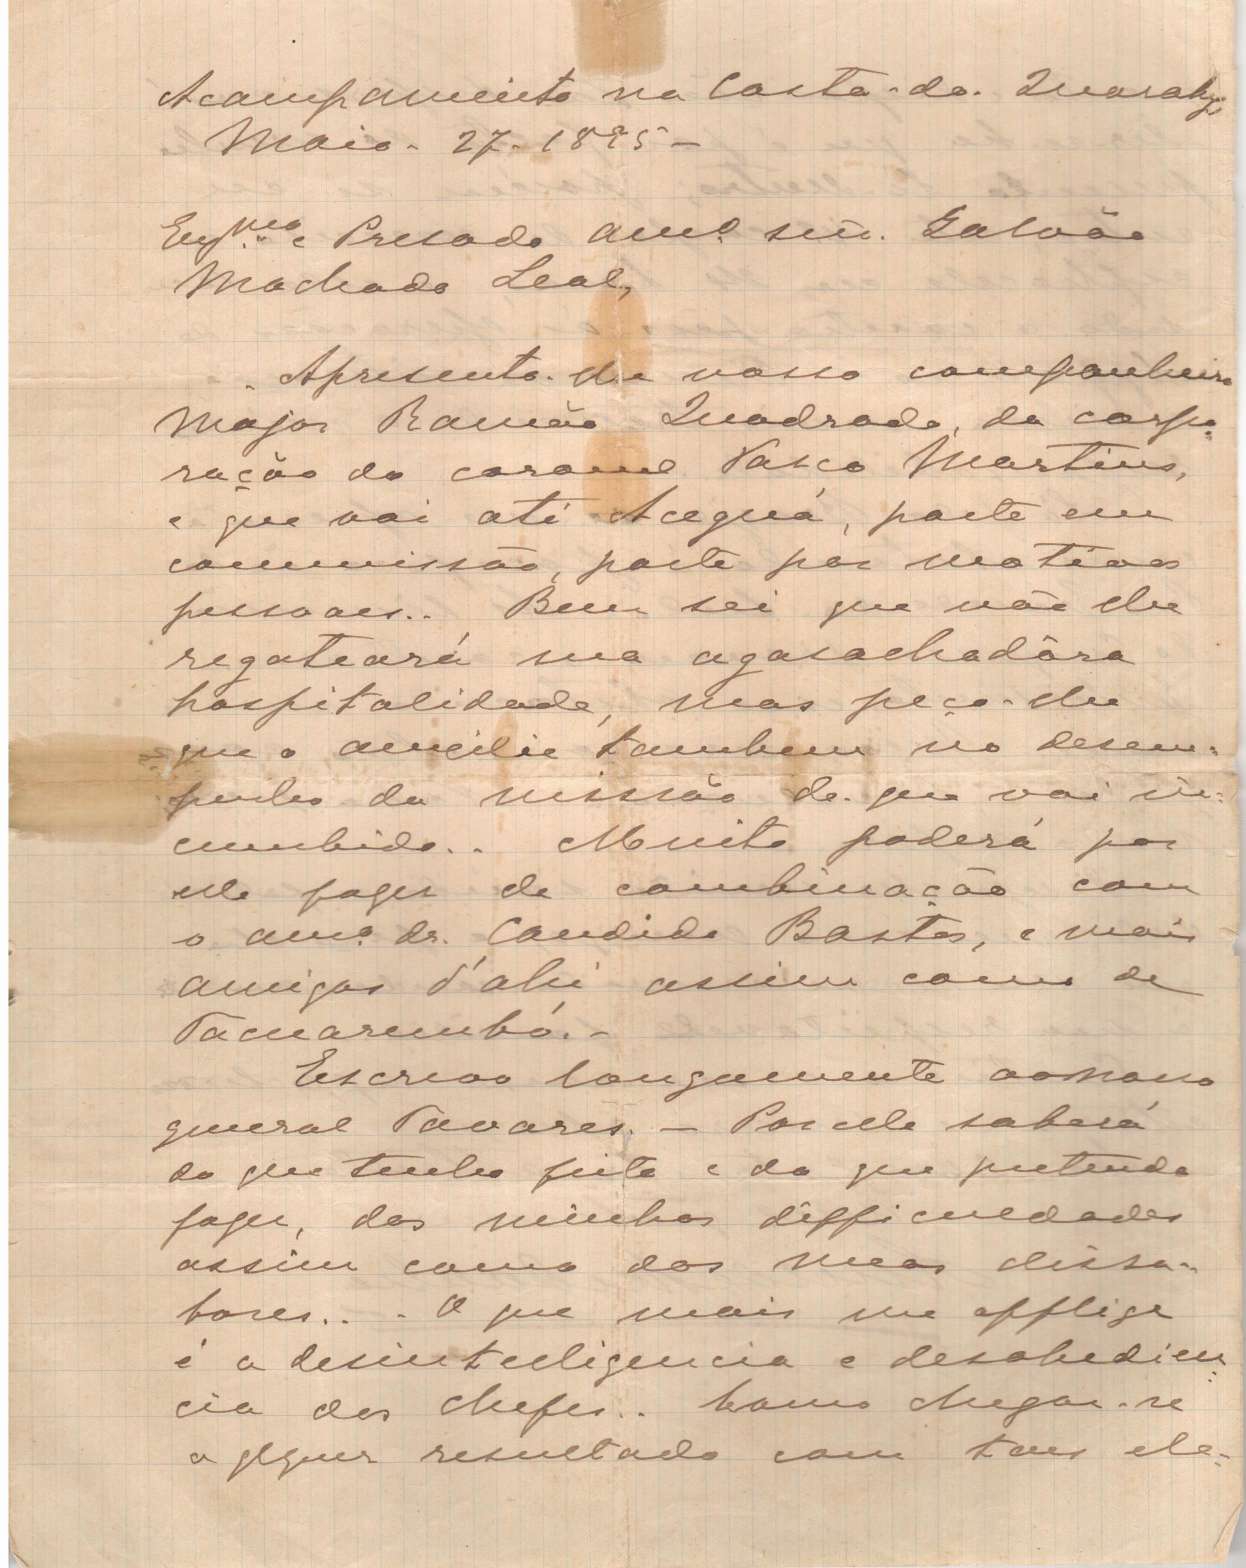 Acampamento na Costa do Quarahy
Maio. 27. 1895 –
Exmo. e Presado amo. snr. Galvão
Machado Leal,
Apresento-lhe vosso companheiro
Major Ramão Quadrado, da corpo-
ração do coronel Vasco Martins,
e que vai até Aceguá, parte em
commissão, parte por motivos
pessoaes.. Bem sei que não lhe
regateará sua agasachadôra
hospitalidade, mas peço-lhe
que o auxilie tambem no desem-
penho da missão de que vai in-
cumbido.. Muito poderá por
elle fazer de combinação com
o amo. dr. Candido Bastos, e mais
amigos d'ahi assim como de
Tacuarembó. –
Escrevo longamente ao nosso
general Tavares. – Por elle saberá
do que tenho feito e do que pretendo
fazer, das minhas difficuldades
assim como dos meus dissa-
bores.. O que mais me afflige
é a desintelligencia e desobedien-
cia dos chefes.. Como chegar-se
a qlquer resultado com taes ele-